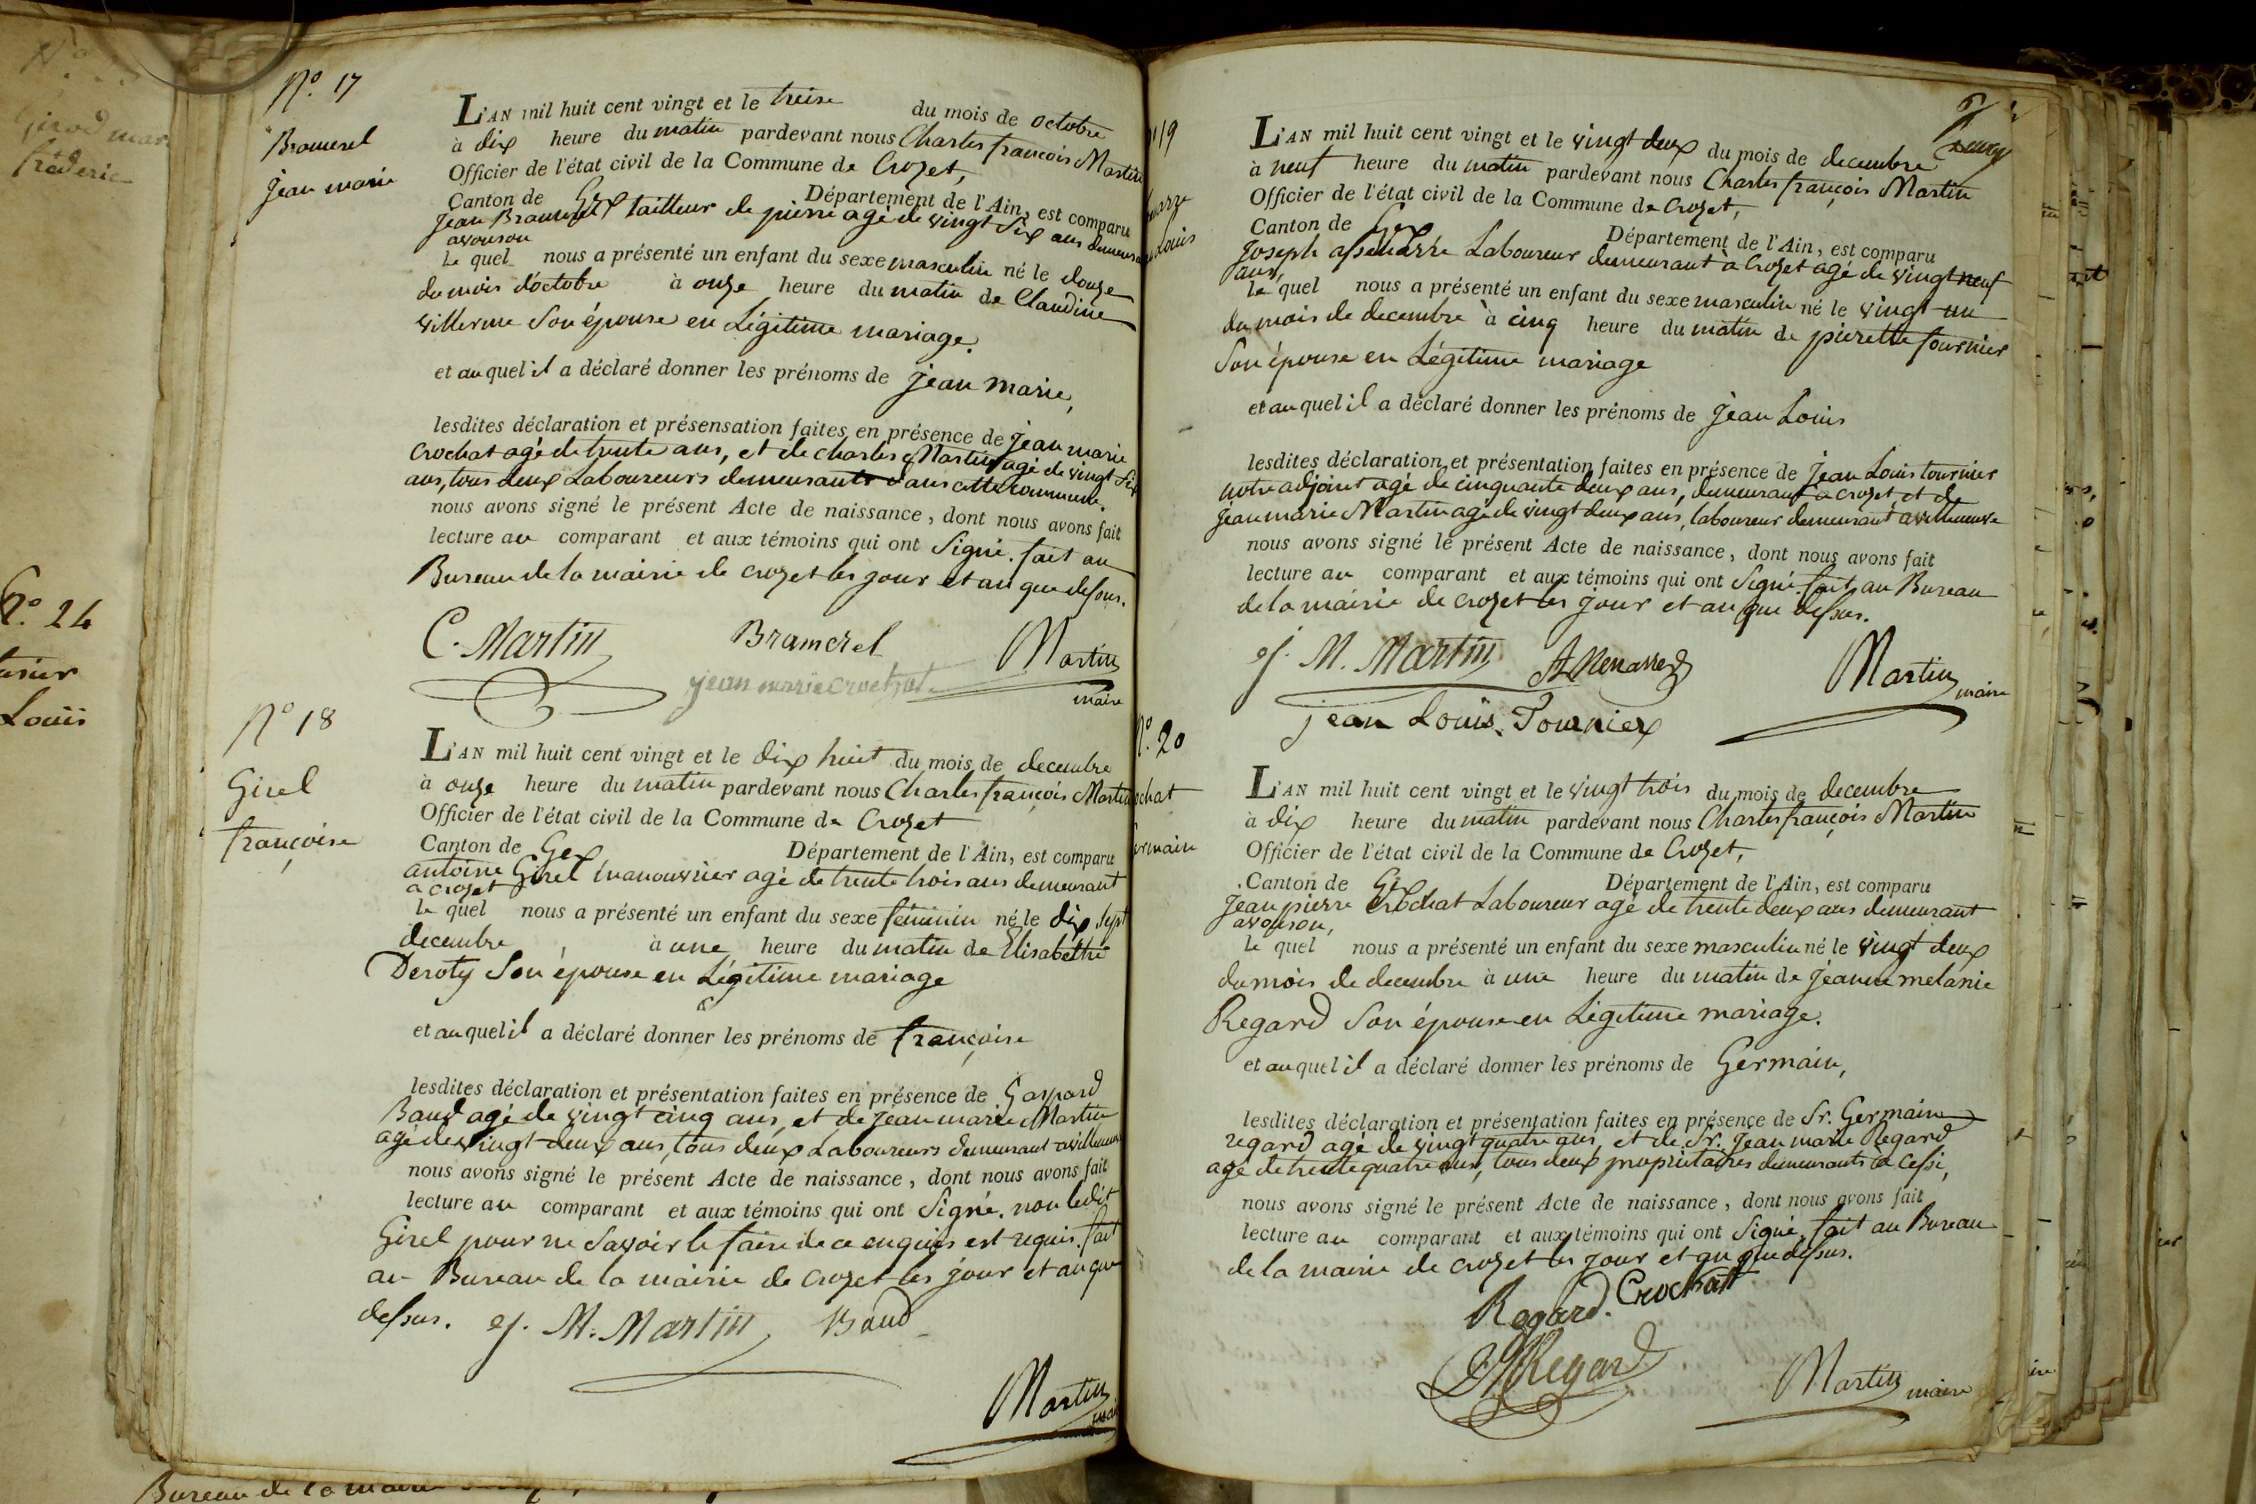 Girod mar
fréderic
N.° 24
Louïs
N.° 17
Bramerel
jean marie
L'AN mil huit cent vingt et le treise du mois de octobre
à dix heure du matin pardevant nous Charles françois Martin
Officier de l'état civil de la Commune de Crozet,
Canton de Gex Département de l'Ain, est comparu
Jean Bramerel tailleur de pierre agé de vingt six ans demeurant
avouson
le quel nous a présenté un enfant du sexe masculin né le douze
du mois d'octobre à onze heure du matin de Claudine
villerme son épouse en Légitime mariage.
et auquel il a déclaré donner les prénoms de jean marie,
lesdites déclaration et présensation faites en présence de jean marie
Crochat agé de trente ans, et de charles Martin agé de vingt six
ans, tous deux Laboureurs demeurants dans cette commune.
nous avons signé le présent Acte de naissance, dont nous avons fait
lecture au comparant et aux témoins qui ont Signé. fait au
Bureau de la mairie de crozet les jour et an que dessus.
C. Martin Bramerel Martin
jean marie crochat maire
N.° 18
Girel
françoise
L'AN mil huit cent vingt et le dix huit du mois de decembre
à onze heure du matin pardevant nous Charles françois Martin
Officier de l'état civil de la Commune de Crozet
Canton de Gex Département de l'Ain, est comparu
antoine Girel manouvrier agé de trente trois ans demeurant
a crozet
le quel nous a présenté un enfant du sexe féminin né le dix sept
decembre, à une heure du matin de Elisabethe
Deroty son épouse en Légitime mariage
et auquel il a déclaré donner les prénoms de françoise
lesdites déclaration et présentation faites en présence de Gaspard
Baud agé de vingt cinq ans, et de jean marie Martin
agé de vingt deux ans, tous deux Laboureurs demeurant a villeneuve
nous avons signé le présent Acte de naissance, dont nous avons fait
lecture au comparant et aux témoins qui ont Signé. non ledit
Girel pour ne savoir le faire de ce enquis est requis. fait
au Bureau de la mairie de crozet les jour et an que
dessus. j. M. Martin Baud
Martin
Bureau de la mairie
19
Louis
L'AN mil huit cent vingt et le vingt deux du mois de decembre
à neuf heure du matin pardevant nous Charles françois Martin
Officier de l'état civil de la Commune de Crozet,
Canton de Gex Département de l'Ain, est comparu
Joseph Laboureur demeurant à Crozet agé de vingt neuf
ans,
le quel nous a présenté un enfant du sexe masculin né le vingt un
du mois de decembre à cinq heure du matin de pierette fournier
Son épouse en Légitime mariage
et auquel il a déclaré donner les prénoms de jean Louis
lesdites déclaration et présentation faites en présence de jean Louis tournier
notre adjoint agé de cinquante deux ans, demeurant a crozet et de
jean marie Martin agé de vingt deux ans, laboureur demeurant a villeneuve
nous avons signé le présent Acte de naissance, dont nous avons fait
lecture au comparant et aux témoins qui ont Signé. fait au Bureau
de la mairie de crozet les jour et an que dessus.
j. M. Martin Martin maire
jean Louis Tournier
N.° 20
ochat
ermain
L'AN mil huit cent vingt et le vingt trois du mois de decembre
à dix heure du matin pardevant nous Charles françois Martin
Officier de l'état civil de la Commune de Crozet,
Canton de Gex Département de l'Ain, est comparu
Jean pierre Crochat Laboureur agé de trente deux ans demeurant
avouson,
le quel nous a présenté un enfant du sexe masculin né le vingt deux
du mois de decembre à une heure du matin de jeanne melanie
Regard Son épouse en Légitime mariage.
et auquel il a déclaré donner les prénoms de Germain,
lesdites déclaration et présentation faites en présence de Sr. Germain
regard agé de vingt quatre ans, et de Sr. jean marie Regard
agé de trente quatre ans, tous deux proprietaires demeurants à cessi,
nous avons signé le présent Acte de naissance, dont nous avons fait
lecture au comparant et aux témoins qui ont Signé, fait au Bureau
de la mairie de crozet les jour et an que dessus.
Regard. Crochatt
Regard
Martin maire